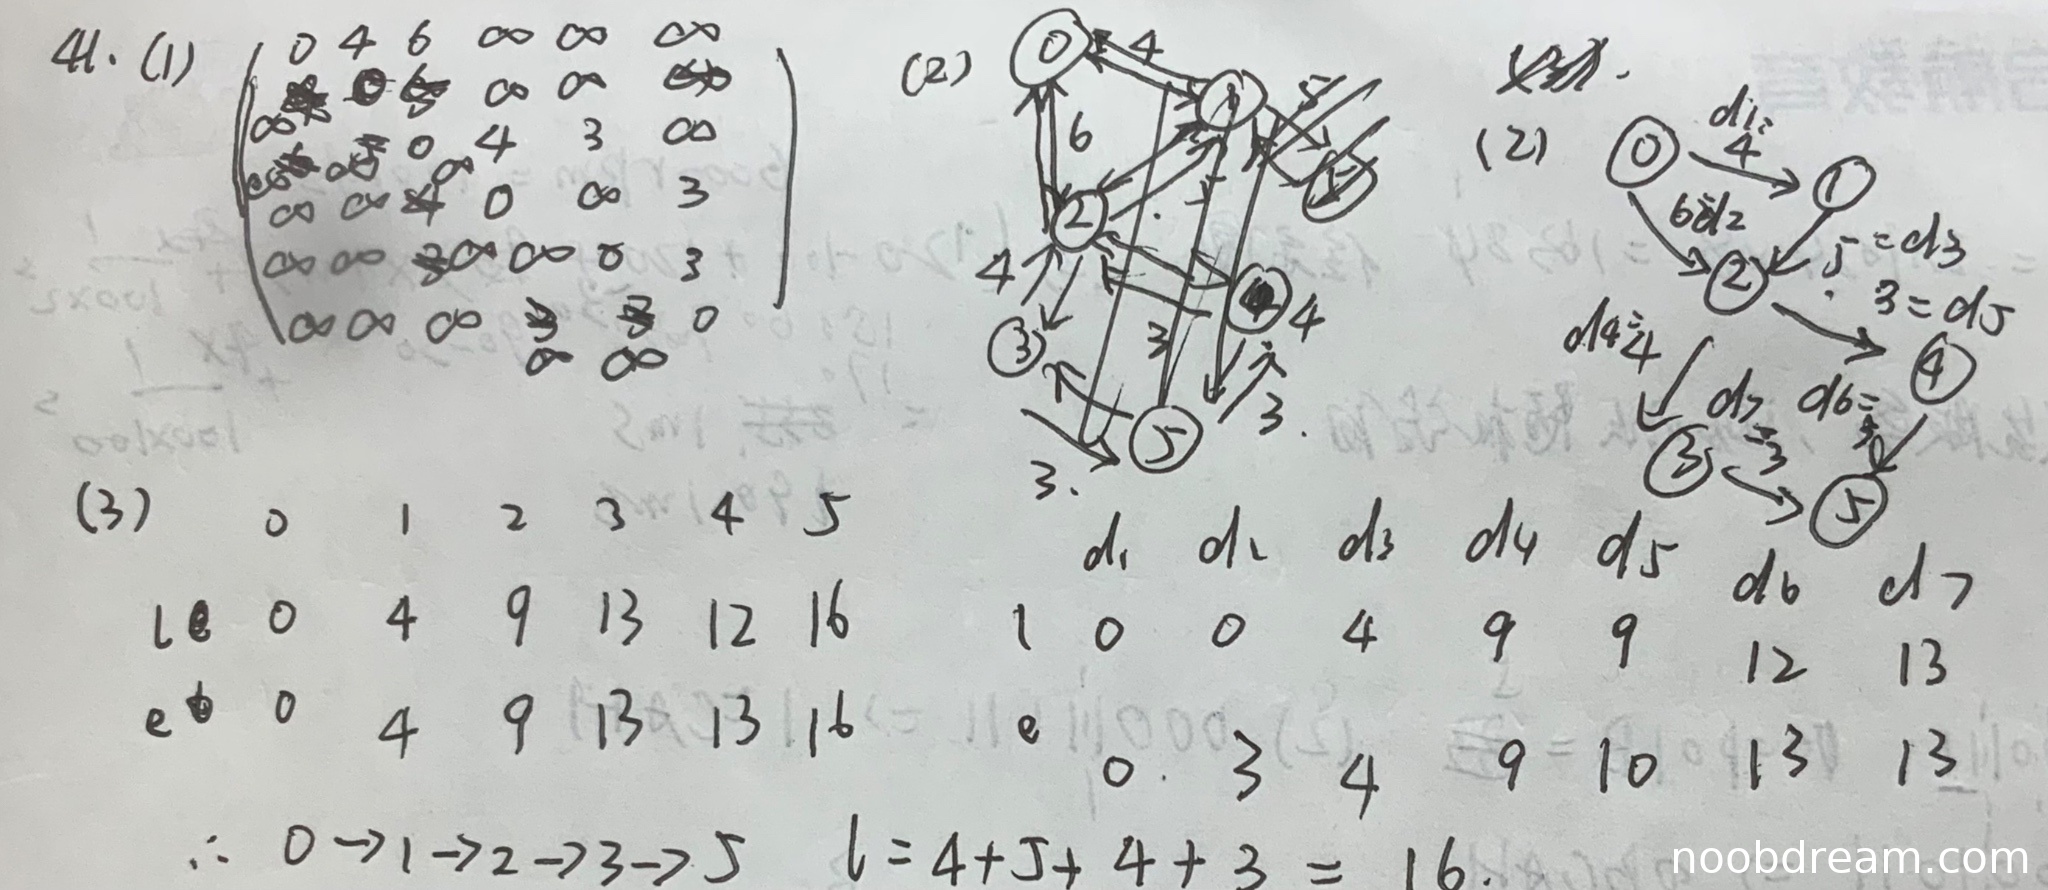 41. (1)
0 4 6 ∞ ∞ ∞
∞ 0 5 ∞ ∞ ∞
∞ ∞ 0 4 3 ∞
∞ ∞ ∞ 0 ∞ 3
∞ ∞ ∞ ∞ 0 3
∞ ∞ ∞ ∞ ∞ 0
(2)
0 4 1 5
6
2
4 4
3 3
5 3.
3.
(2) 0 d1=4 1
6=d2 5=d3
2 3=d5
d4=4 4
d7=3 d6=3
3 5
(3) 0 1 2 3 4 5
le 0 4 9 13 12 16
et 0 4 9 13 13 16
d1 d2 d3 d4 d5 d6 d7
l 0 0 4 9 9 12 13
e 0 3 4 9 10 13 13
∴ 0→1→2→3→5 l=4+5+4+3=16.
noobdream.com